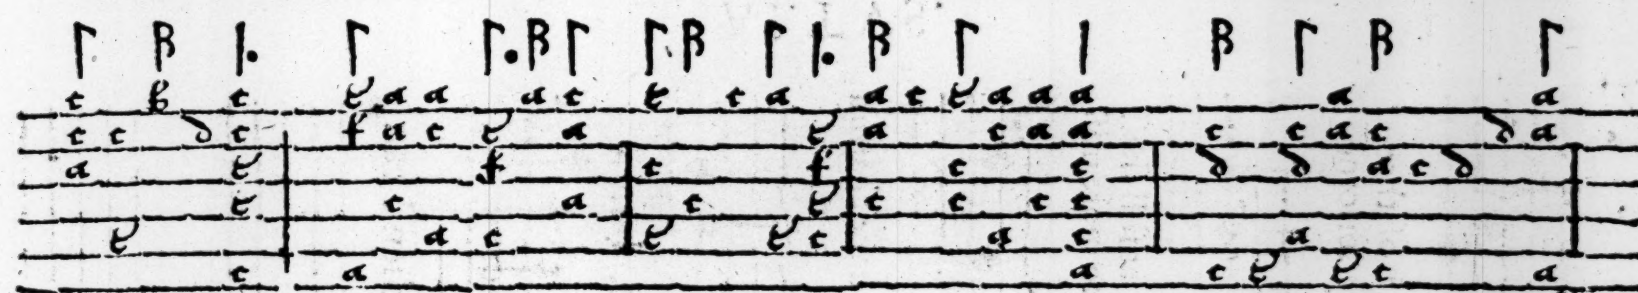 c b c e a a a c e c a a c e a a a a a
c c d c f a c e a e a c a a c c a c d a
a e f c f c c d d a c d
e c a c e c c c c
e a c e e c a c a
c a a c e e c a